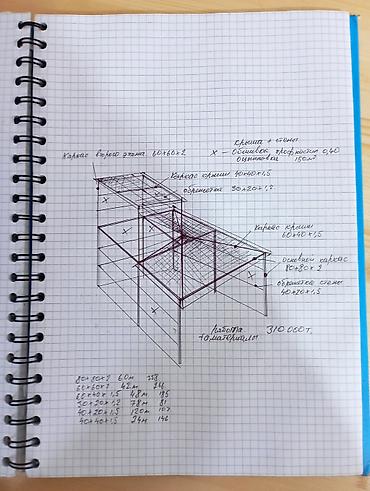 крыша + стены
Каркас второго этажа 60×60×2
х – Обшивка профнастил 0,40
оцинковка 150м²
Каркас крыши 40×40×1,5
обрешетка 30×20×1,2
Каркас крыши
60×40×1,5
Основной каркас
80×80×2
обрешетка стены
40×20×1,5
работа
+ материалы 310 000т.
80×80×2 60м
60×60×2 42м
60×40×1,5 48м 195
30×20×1,2 78м 81
40×20×1,5 120м 107
40×40×1,5 24м 146